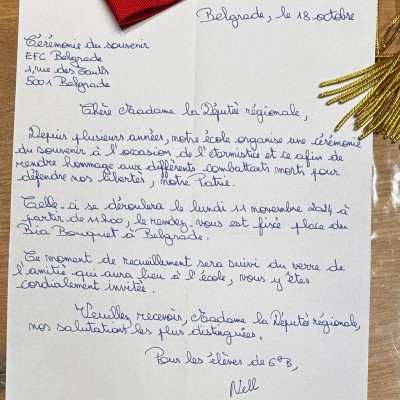 Belgrade, le 18 octobre
Cérémonie du souvenir
EFC Belgrade
1, rue des Tarlis
5001 Belgrade
Chère Madame la Députée régionale,
Depuis plusieurs années, notre école organise une cérémonie
du souvenir à l'occasion de l'Armistice et ce afin de
rendre hommage aux différents combattants morts pour
défendre nos libertés, notre Patrie.
Celle-ci se déroulera le lundi 11 novembre 2024 à
partir de 11h00, le rendez-vous est fixé place du
Bia Bouquet à Belgrade.
Ce moment de recueillement sera suivi du verre de
l'amitié qui aura lieu à l'école, vous y êtes
cordialement invitée.
Veuillez recevoir, Madame la Députée régionale,
nos salutations les plus distinguées.
Pour les élèves de 6e B,
Nell